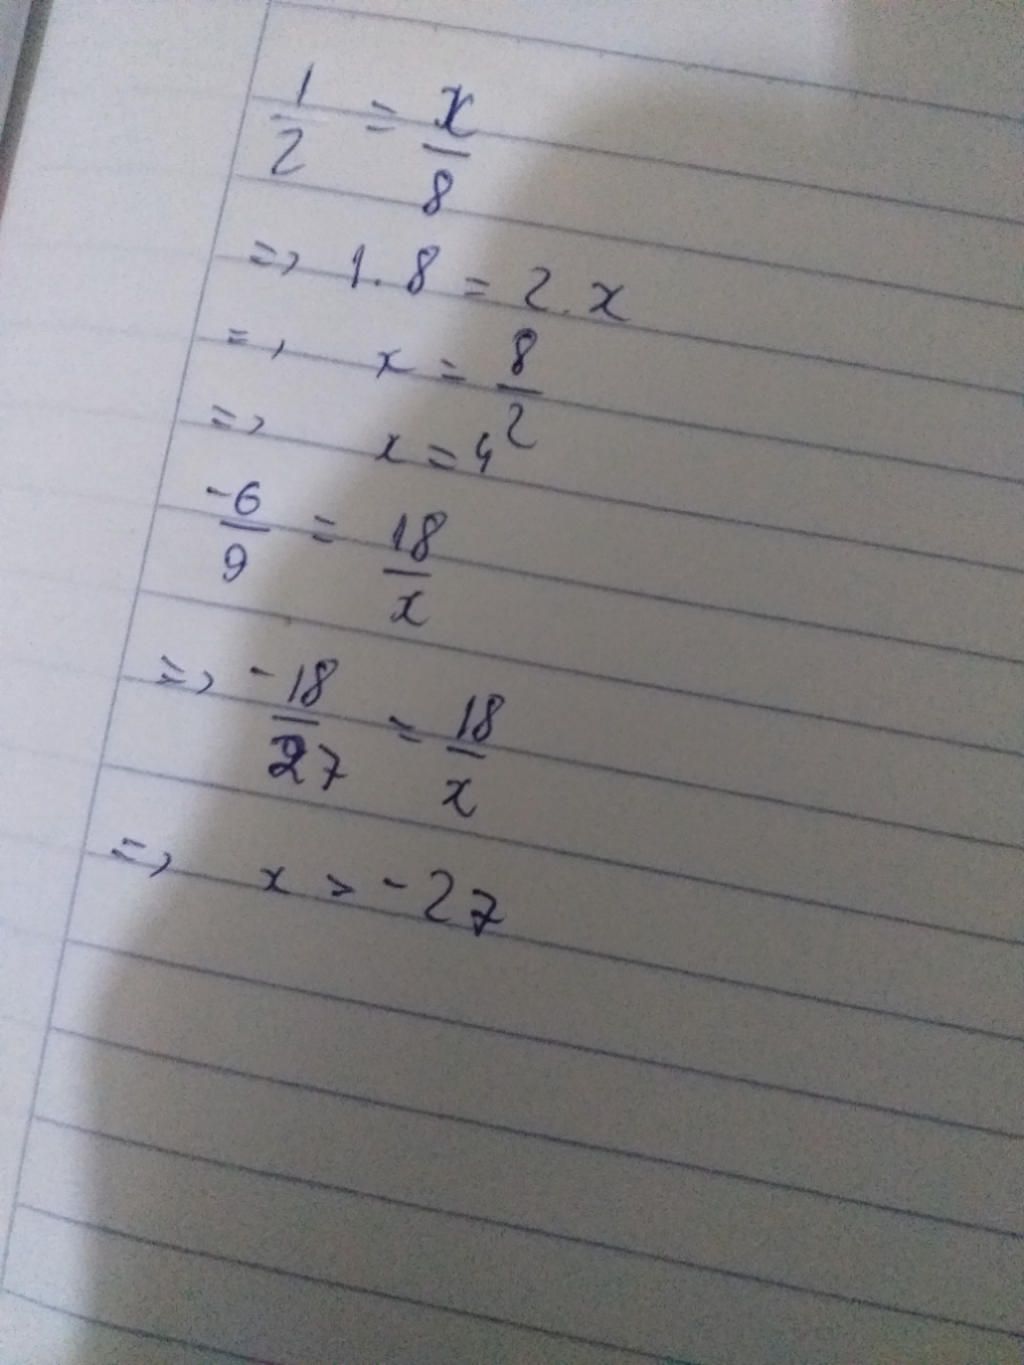 1/2 = x/8
=> 1.8 = 2.x
=> x = 8/2
=> x = 4
-6/9 = 18/x
=> -18/27 = 18/x
=> x = -27